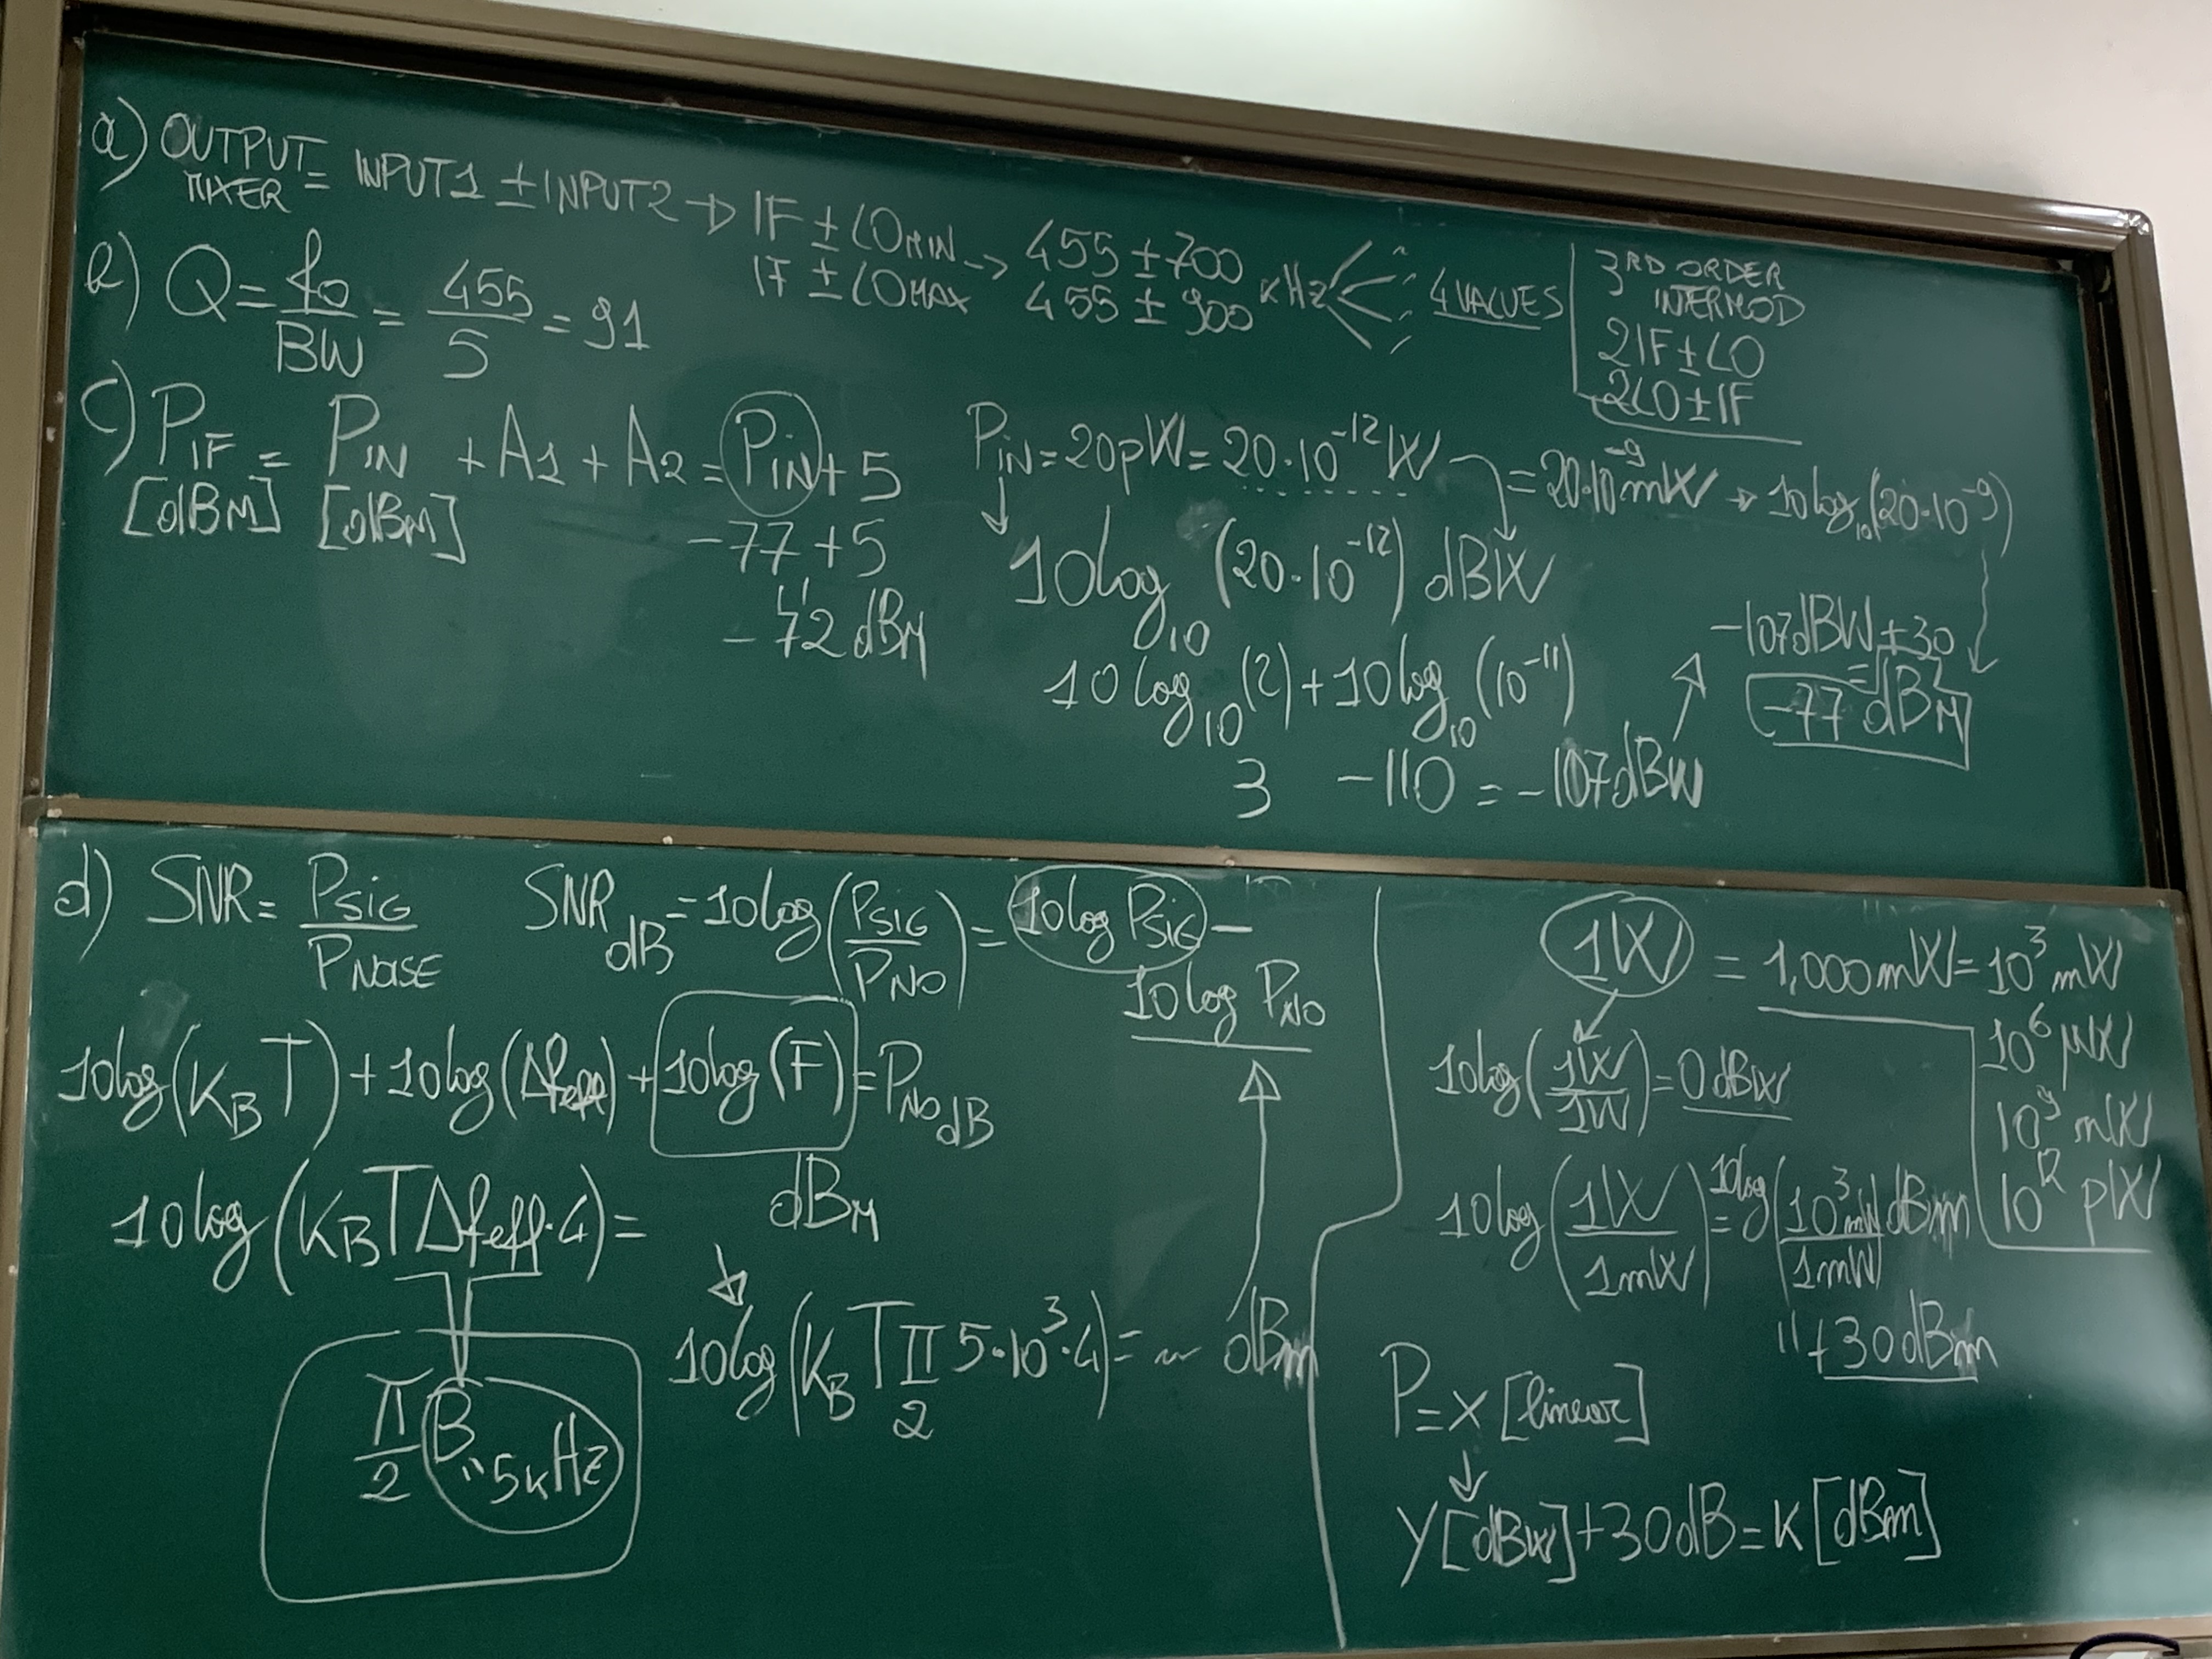 a) OUTPUT MIXER = INPUT1 ± INPUT2 → IF ± LO MIN → 455 ± 700
IF ± LO MAX 455 ± 900 kHz 4 VALUES
3RD ORDER
INTERMOD
2IF ± LO
2LO ± IF
b) Q = fo/BW = 455/5 = 91
c) P_IF [dBM] = P_IN [dBM] + A1 + A2 = P_IN + 5
-77 + 5
"
-72 dBM
P_IN = 20pW = 20·10^-12 W = 20·10^-9 mW → 10log_10(20·10^-9)
10log_10 (20·10^-12) dBW
10log_10(2) + 10log_10(10^-11)
3 -110 = -107dBW
-107dBW + 30
=
-77 dBM
d) SNR = P_SIG/P_NOISE SNR_dB = 10log(P_SIG/P_NO) = 10log P_SIG -
10log P_NO
10log(K_B T) + 10log(Δfeff) + 10log(F) = P_NO dB
dBM
10log(K_B T Δfeff·4) =
π/2 B "5kHz
10log(K_B T π/2 5·10^3·4) = ~ dBm
1W = 1,000mW = 10^3 mW
10^6 µW
10^9 nW
10^12 pW
10log(1W/1W) = 0dBW
10log(1W/1mW) = 10log(10^3mW/1mW) dBm
" +30dBm
P = x [linear]
↓
Y[dBW] + 30dB = K[dBm]